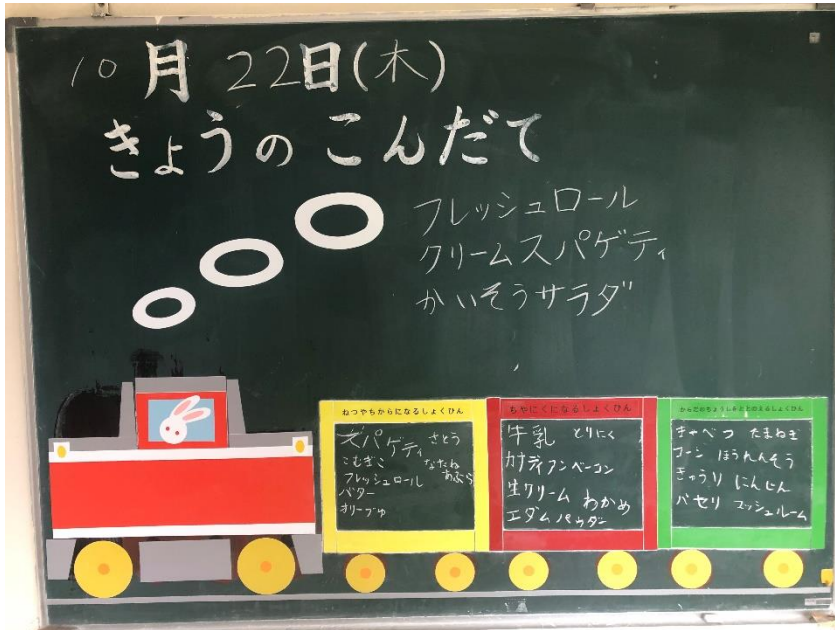 10月22日(木)
きょうのこんだて
フレッシュロール
クリームスパゲティ
かいそうサラダ
ねつやちからになるしょくひん
スパゲティ さとう
こむぎこ なたねあぶら
フレッシュロール
バター
オリーブゆ
ちやにくになるしょくひん
牛乳 とりにく
カナディアンベーコン
生クリーム わかめ
エダムパウダー
からだのちょうしをととのえるしょくひん
きゃべつ たまねぎ
コーン ほうれんそう
きゅうり にんじん
パセリ マッシュルーム